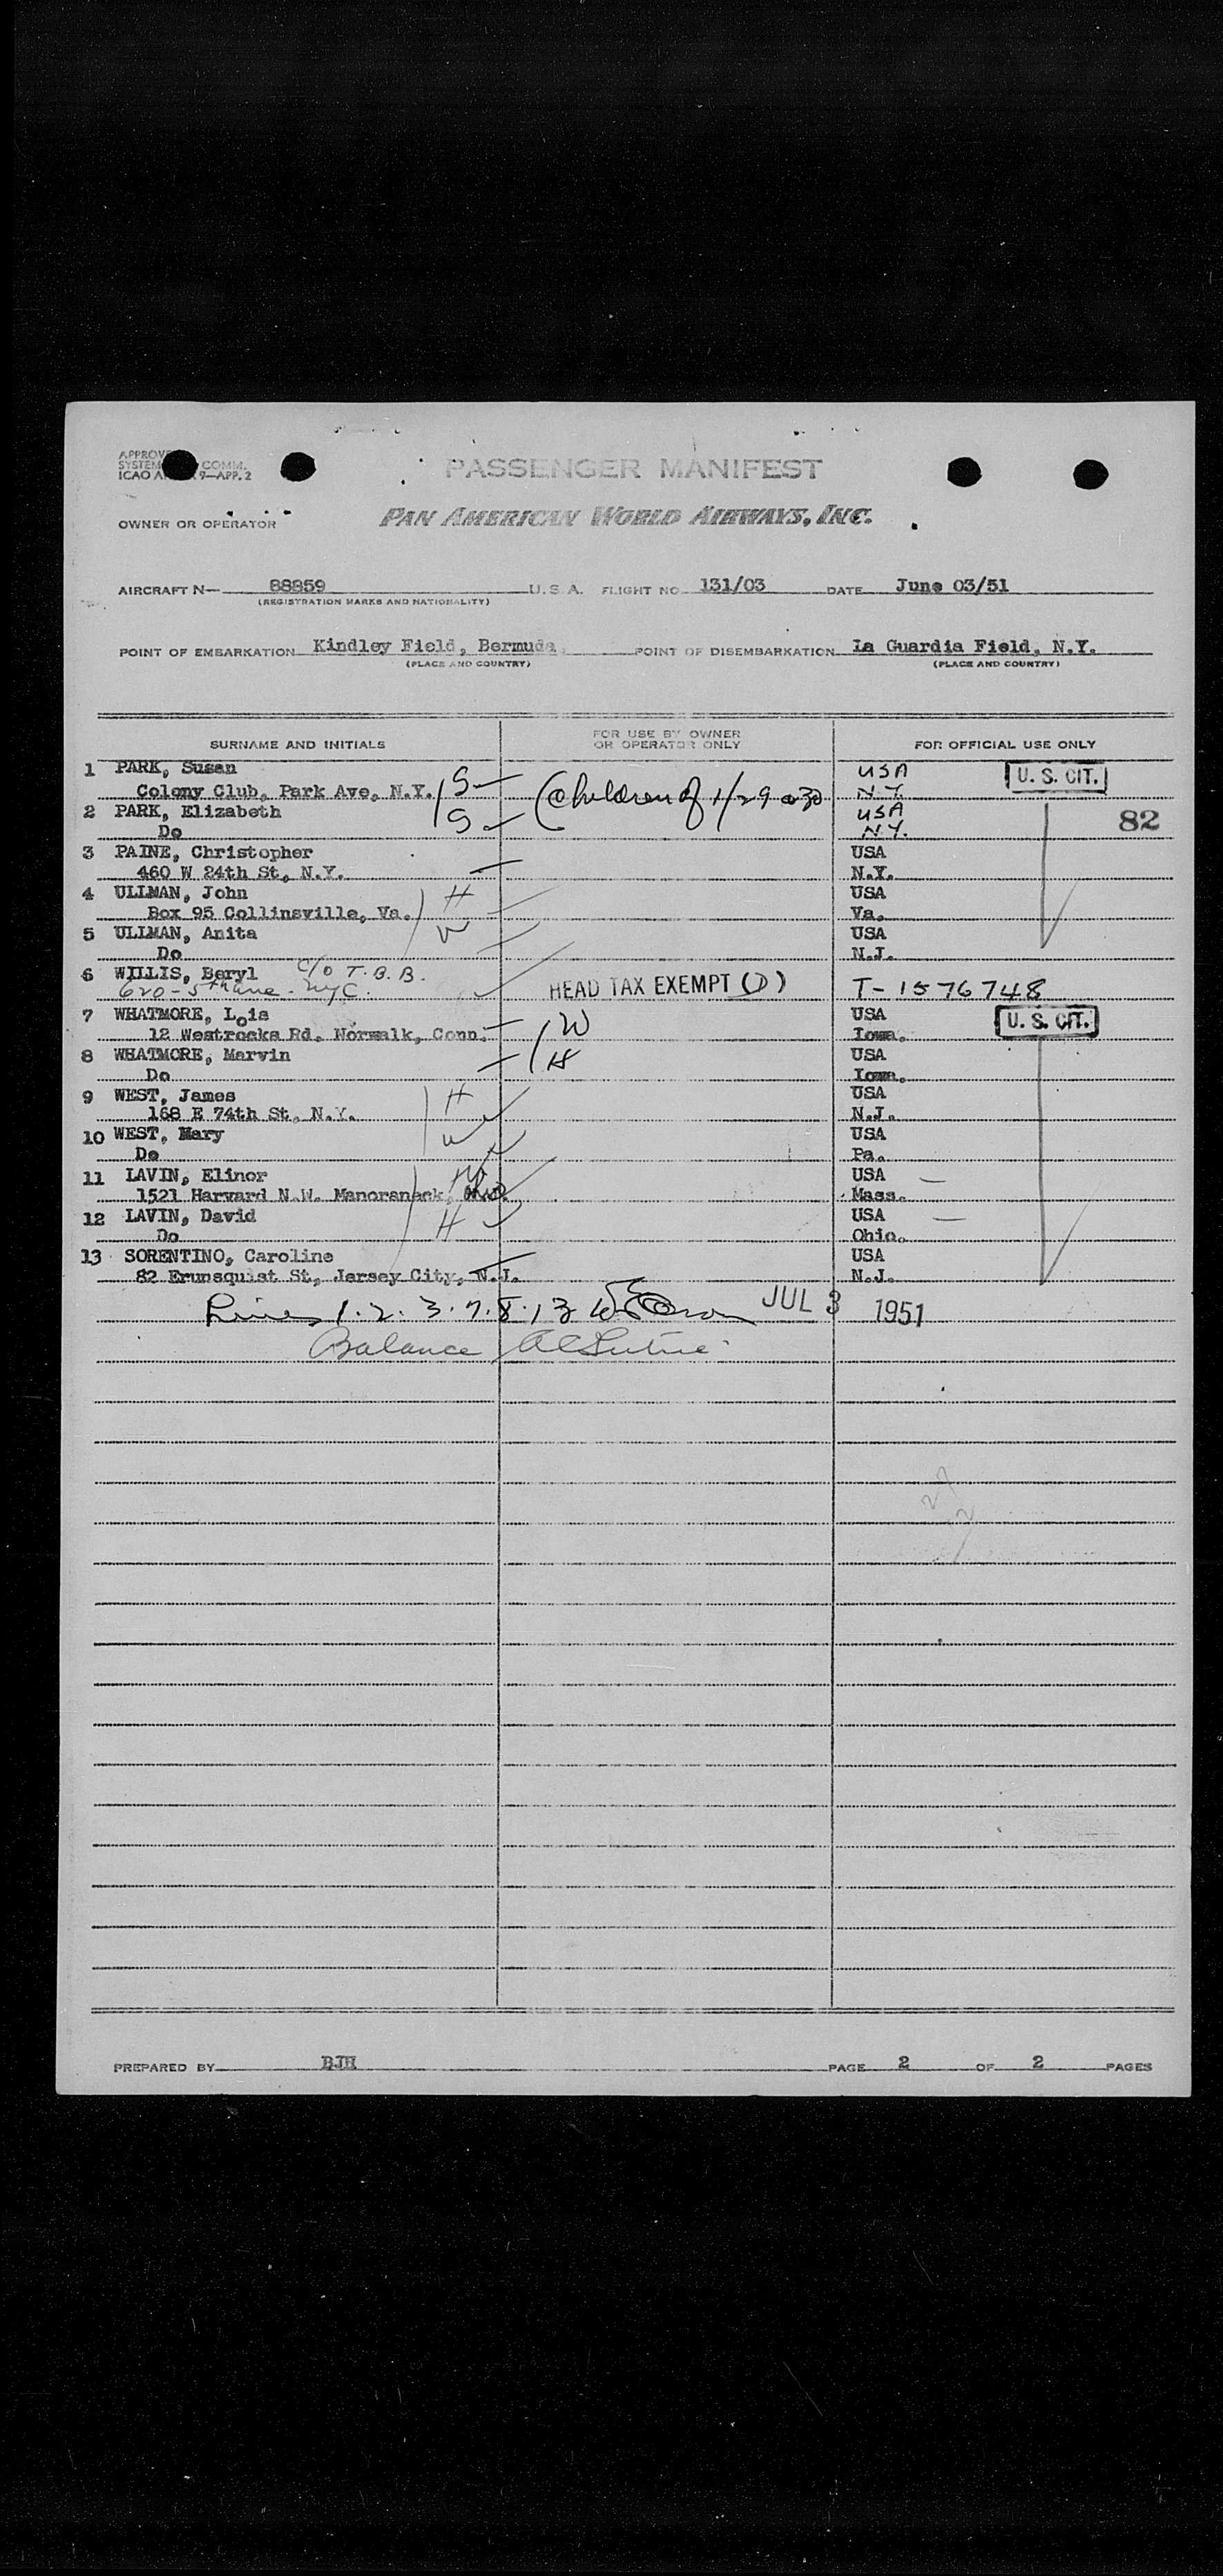 PASSENGER MANIFEST
ICAO 9—APP. 2
OWNER OR OPERATOR PAN AMERICAN WORLD AIRWAYS, INC.
AIRCRAFT N— 88859 U. S. A. FLIGHT NO. 131/03 DATE June 03/51
(REGISTRATION MARKS AND NATIONALITY)
POINT OF EMBARKATION Kindley Field, Bermuda POINT OF DISEMBARKATION La Guardia Field, N.Y.
(PLACE AND COUNTRY) (PLACE AND COUNTRY)
SURNAME AND INITIALS FOR USE BY OWNER OR OPERATOR ONLY FOR OFFICIAL USE ONLY
1 PARK, Susan USA U. S. CIT.
Colony Club, Park Ave, N.Y. S Children of 1/29 30 N.Y.
2 PARK, Elizabeth S USA 82
Do N.Y.
3 PAINE, Christopher USA
460 W 24th St, N.Y. N.Y.
4 ULLMAN, John H USA
Box 95 Collinsville, Va. Va.
5 ULLMAN, Anita W USA
Do N.J.
6 WILLIS, Beryl c/o T.B.B.
620-5th Ave. NYC. HEAD TAX EXEMPT (D) T-1576748
7 WHATMORE, Lois W USA U. S. CIT.
12 Westrocks Rd. Norwalk, Conn. Iowa.
8 WHATMORE, Marvin H USA
Do Iowa.
9 WEST, James H USA
168 E 74th St, N.Y. N.J.
10 WEST, Mary W USA
Do Pa.
11 LAVIN, Elinor W USA
1521 Harvard N.W. Manorsneck, Mass.
12 LAVIN, David H USA
Do Ohio.
13 SORENTINO, Caroline USA
82 Brunsquist St, Jersey City, N.J. N.J.
Lines 1.2.3.7.8.13 JUL 3 1951
Balance
PREPARED BY BJH PAGE 2 OF 2 PAGES